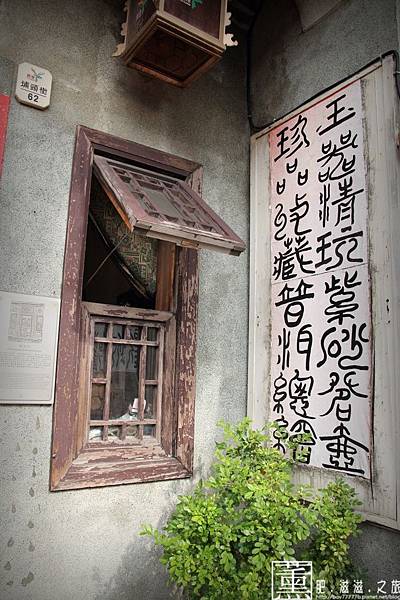 埔頭街
62
玉器精玩紫砂名壺
珍品收藏普洱總
薰 肥.滋滋.之旅
http://boy77777b.pixnet.net/blog